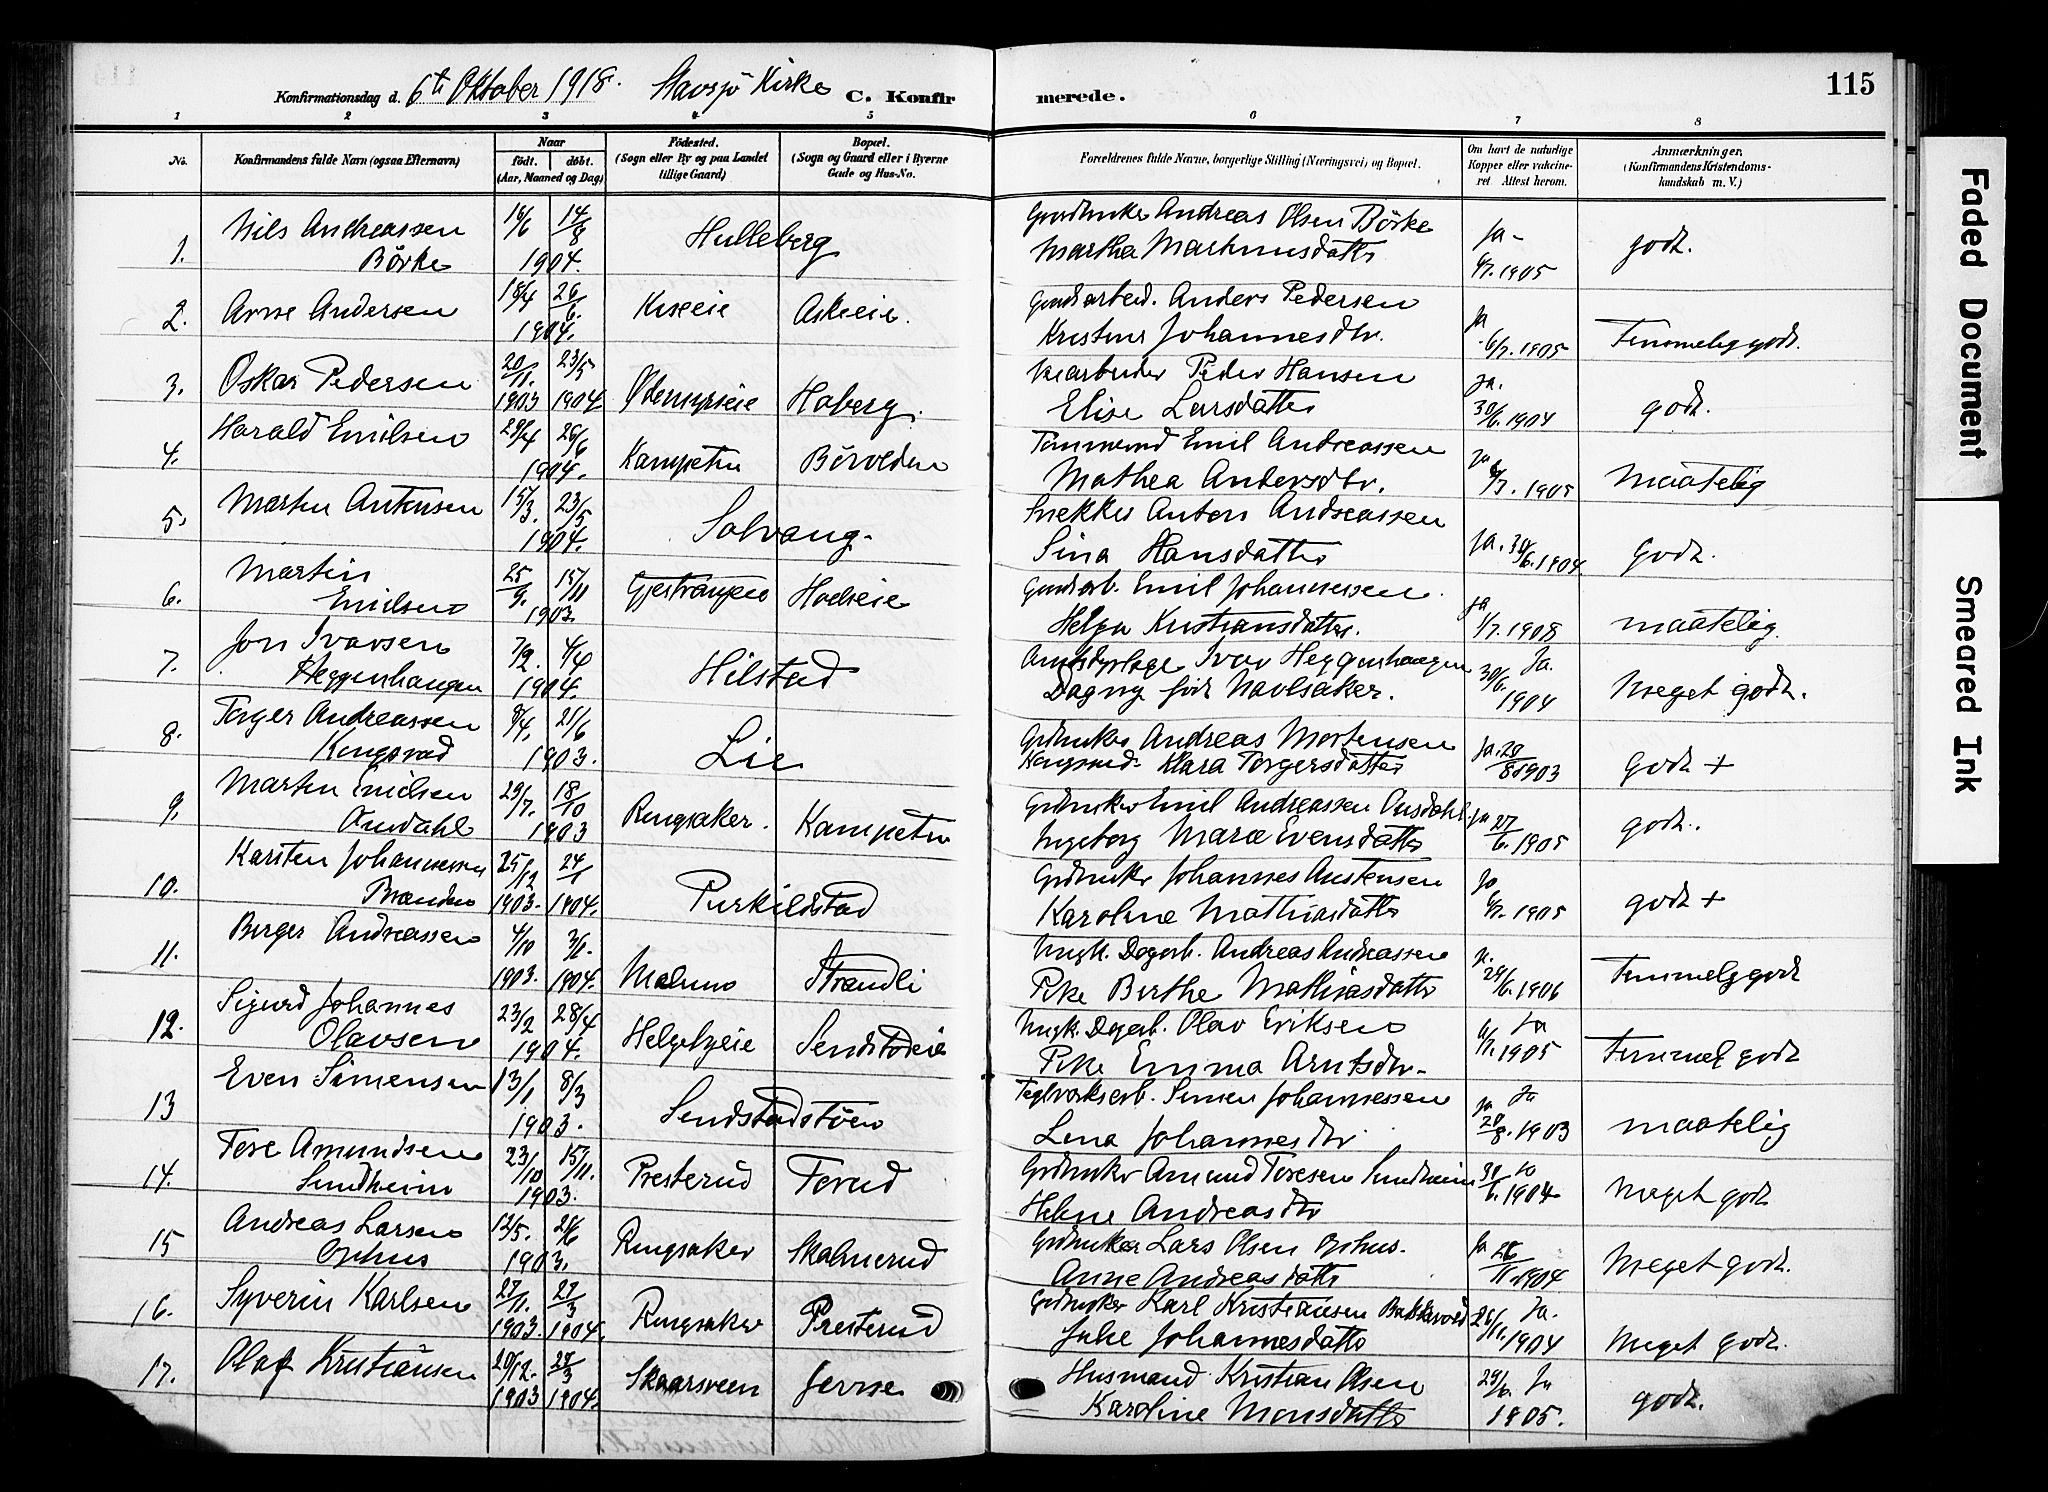 Konfirmationsdag d. 6te Oktober 1918. Stavsjö Kirke C. Konfirmerede. 115
1 2 3 4 5 6 7 8
No. Konfirmandens fulde Navn (ogsaa Efternavn) Naar født. døbt. (Aar, Maaned og Dag) Fødested. (Sogn eller By og paa Landet tillige Gaard) Bopæl. (Sogn og Gaard eller i Byerne Gade og Hus-No. Forældrenes fulde Navne, borgerlige Stilling (Næringsvei) og Bopæl. Om havt de naturlige Kopper eller vakcineret Attest herom. Anmærkninger, (Konfirmandens Kristendomskundskab m. V.)
1. Nils Andreassen 16/6 14/8 Hulleberg Gaardbruker Andreas Olsen Börke Ja-
Börke 1904. Martha Martinusdatter 6/7. 1905 godt.
2. Arne Andersen 18/4 26/6. Kiseeie Askeie. Gaardsarbeid. Anders Pedersen Ja
1904. Kristine Johannesdtr. 6/7. 1905 Temmelig godt.
3. Oskar Pedersen 20/11. 23/5 Hoberg. Peder Hansen Ja.
1903 1904. Elise Larsdatter 30/6. 1904 godt.
4. Harald Emilsen 29/4 26/6 Kampetru Börvolden Tömmermd Emil Andreassen Ja
1904. Mathea Andersdtr. 6/7. 1905 Maatelig
5. Martin Antonsen 15/3. 23/5 Solvang. Snekker Anton Andreassen
1904. Sina Hansdatter Ja. 30/6. 1904 Godt.
6. Martin 25/9. 15/11 Hoelseie Gaardsarb. Emil Johannessen Ja
Emilsen 1903. Helga Kristiansdatter. 1/7. 1908 maatelig.
7. Jon Ivarsen 7/2. 4/4 Hilstad Amtsdyrlæge Ivar Heggenhaugen Ja.
Heggenhaugen 1904. Dagny född Navlsaker. 30/6. 1904 Meget godt.
8. Torger Andreassen 8/4. 21/6 Lie Grdbruker Andreas Mortensen
Kongsrud 1903. Kongsrud. Klara Torgersdatter Ja. 20/8 1903 godt +
9. Martin Emilsen 29/7. 18/10 Ringsaker. Kampetru Grdbruker Emil Andreassen Amdahl
Amdahl 1903 Ingeborg Marie Evensdatter Ja 27/6. 1905 godt.
10. Karsten Johannessen 25/12 24/1 Purkildstad Grdbruker Johannes Austensen Ja
Branden 1903. 1904. Karoline Mathiasdatter 6/7. 1905 godt +
11. Birger Andreassen 4/10 3/1. Malmo Strandli Ungk. Dagarb. Andreas Andreassen Ja.
1903. 1904. Pike Berthe Mathiasdatter 29/6. 1906 Temmelig godt
12. Sigurd Johannes 23/2 28/4 Helgebyeie Sendstadeie Ungk. Dagarb. Olav Eriksen Ja
Olavsen 1904. Pike Emma Arntsdtr. 6/7. 1905 Temmel. godt
13 Even Simensen 13/1 8/3 Sendstadstöen Teglverksarb. Simen Johannessen Ja
1903. Lina Johannesdtr. Ja 20/8. 1903 maatelig
14. Tore Amundsen 23/10 15/11. Presterud Torud Grdbruker Amund Toresen Sundheim
Sundheim 1903. Helene Andreasdtr 30/6. 1904 Meget godt
15 Andreas Larsen 12/5. 21/6 Ringsaker Skolmerud Grdbruker Lars Olsen Ophus.
Ophus 1903. Anne Andreasdatter Ja 26/11. 1904 Meget godt.
16. Syverin Karlsen 27/11. 27/3 Ringsaker Presterud Grdbruker Karl Kristiansen Ja.
1903. 1904. Julie Johannesdatter 26/11. 1904 Meget godt.
17. Olaf Kristiansen 20/12. 27/3 Skaarsveen Jevne Husmand Kristian Olsen 29/6. Ja
1903 1904. Karoline Monsdatter 1905. godt.
Faded Document
Smeared Ink